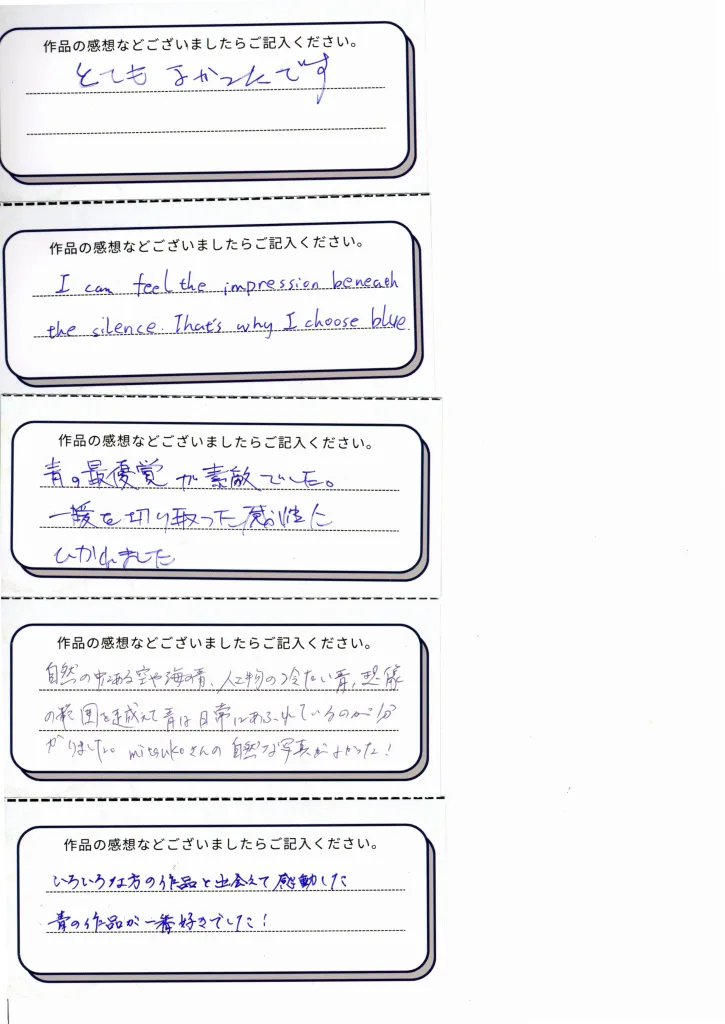 作品の感想などございましたらご記入ください。
とても よかったです
作品の感想などございましたらご記入ください。
I can feel the impression beneath
the silence. That's why I choose blue.
作品の感想などございましたらご記入ください。
青の最優覚が素敵でした。
一瞬を切り取った感性に
ひかれました
作品の感想などございましたらご記入ください。
自然の中にある空や海の青、人工物の冷たい青、想像
の範囲を超えて青は日常にあふれているのが分
かりました。mitsukoさんの自然な写真がよかった!
作品の感想などございましたらご記入ください。
いろいろな方の作品と出会えて感動した
青の作品が一番好きでした!